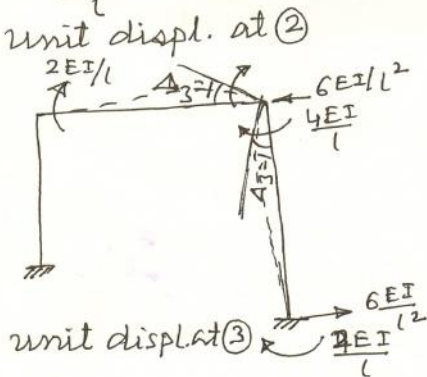 l
unit displ. at ②
2EI/l
Δ3=1
6EI/l²
4EI/l
Δ3=1
6EI/l²
unit displ.at ③
2EI/l